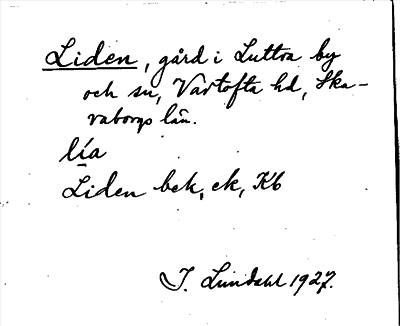 Liden, gård i Luttra by
och sn, Vartofta hd, Ska-
raborgs län.
lia
Liden bek, ek, Kb
I. Lundahl 1927.